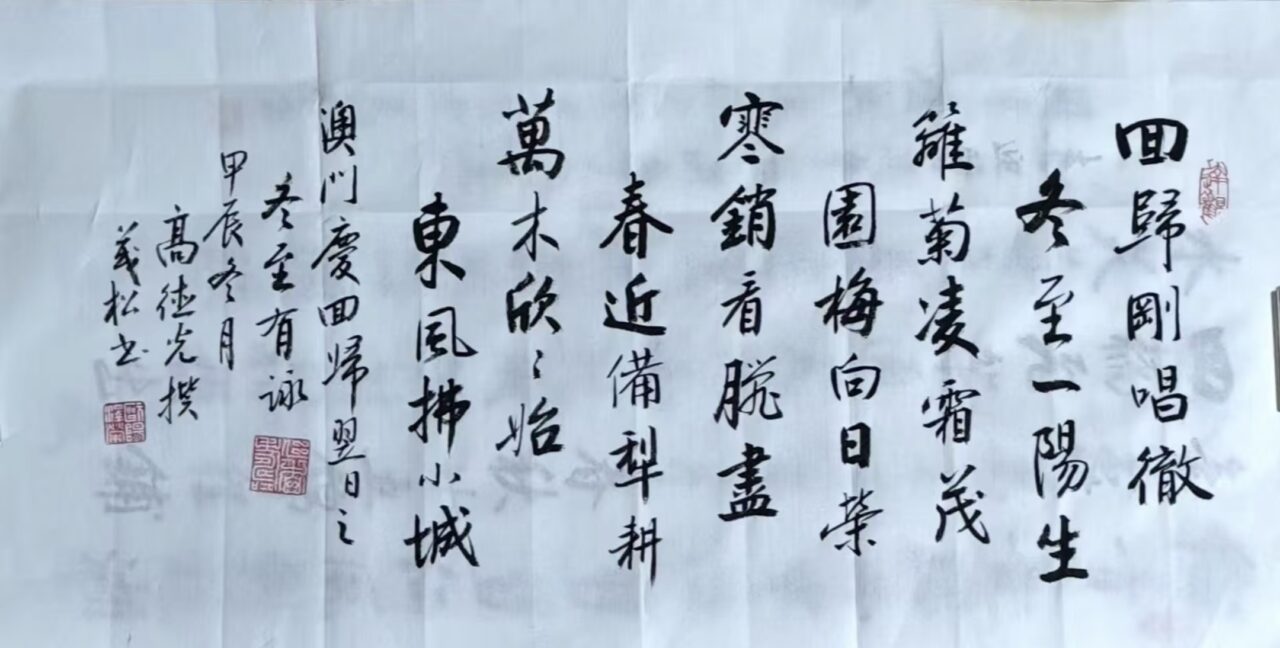 回歸剛唱徹
冬至一陽生
籬菊凌霜茂
園梅向日榮
寒銷看脫盡
春近備犁耕
萬木欣〻始
東風拂小城
澳门慶回歸翌日之
冬至有詠
甲辰冬月
高德光撰
義松书